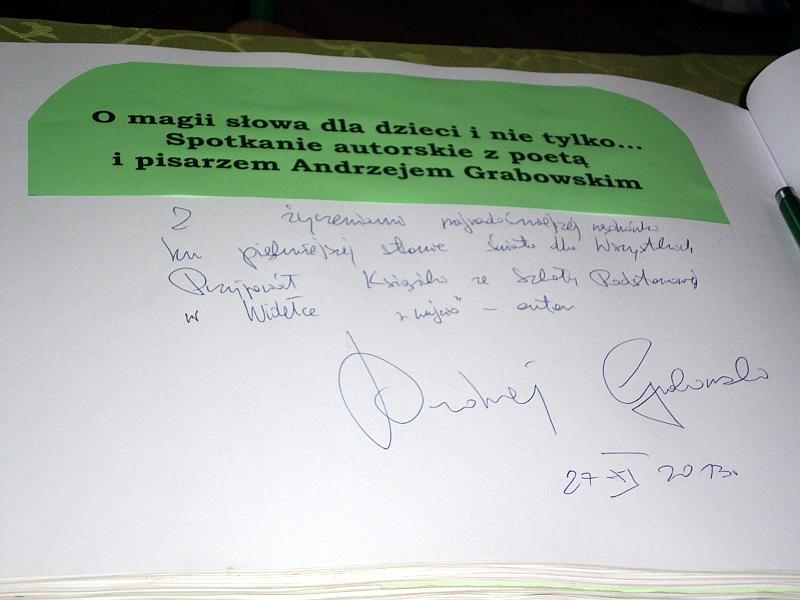 O magii słowa dla dzieci i nie tylko...
Spotkanie autorskie z poetą
i pisarzem Andrzejem Grabowskim
Z życzeniami najradośniejszej wędrówki
ku piękniejszej stronie świata dla Wszystkich
Przyjaciół Książki ze Szkoły Podstawowej
w Widełce - autor
Andrzej Grabowski
27 XI 2013r.